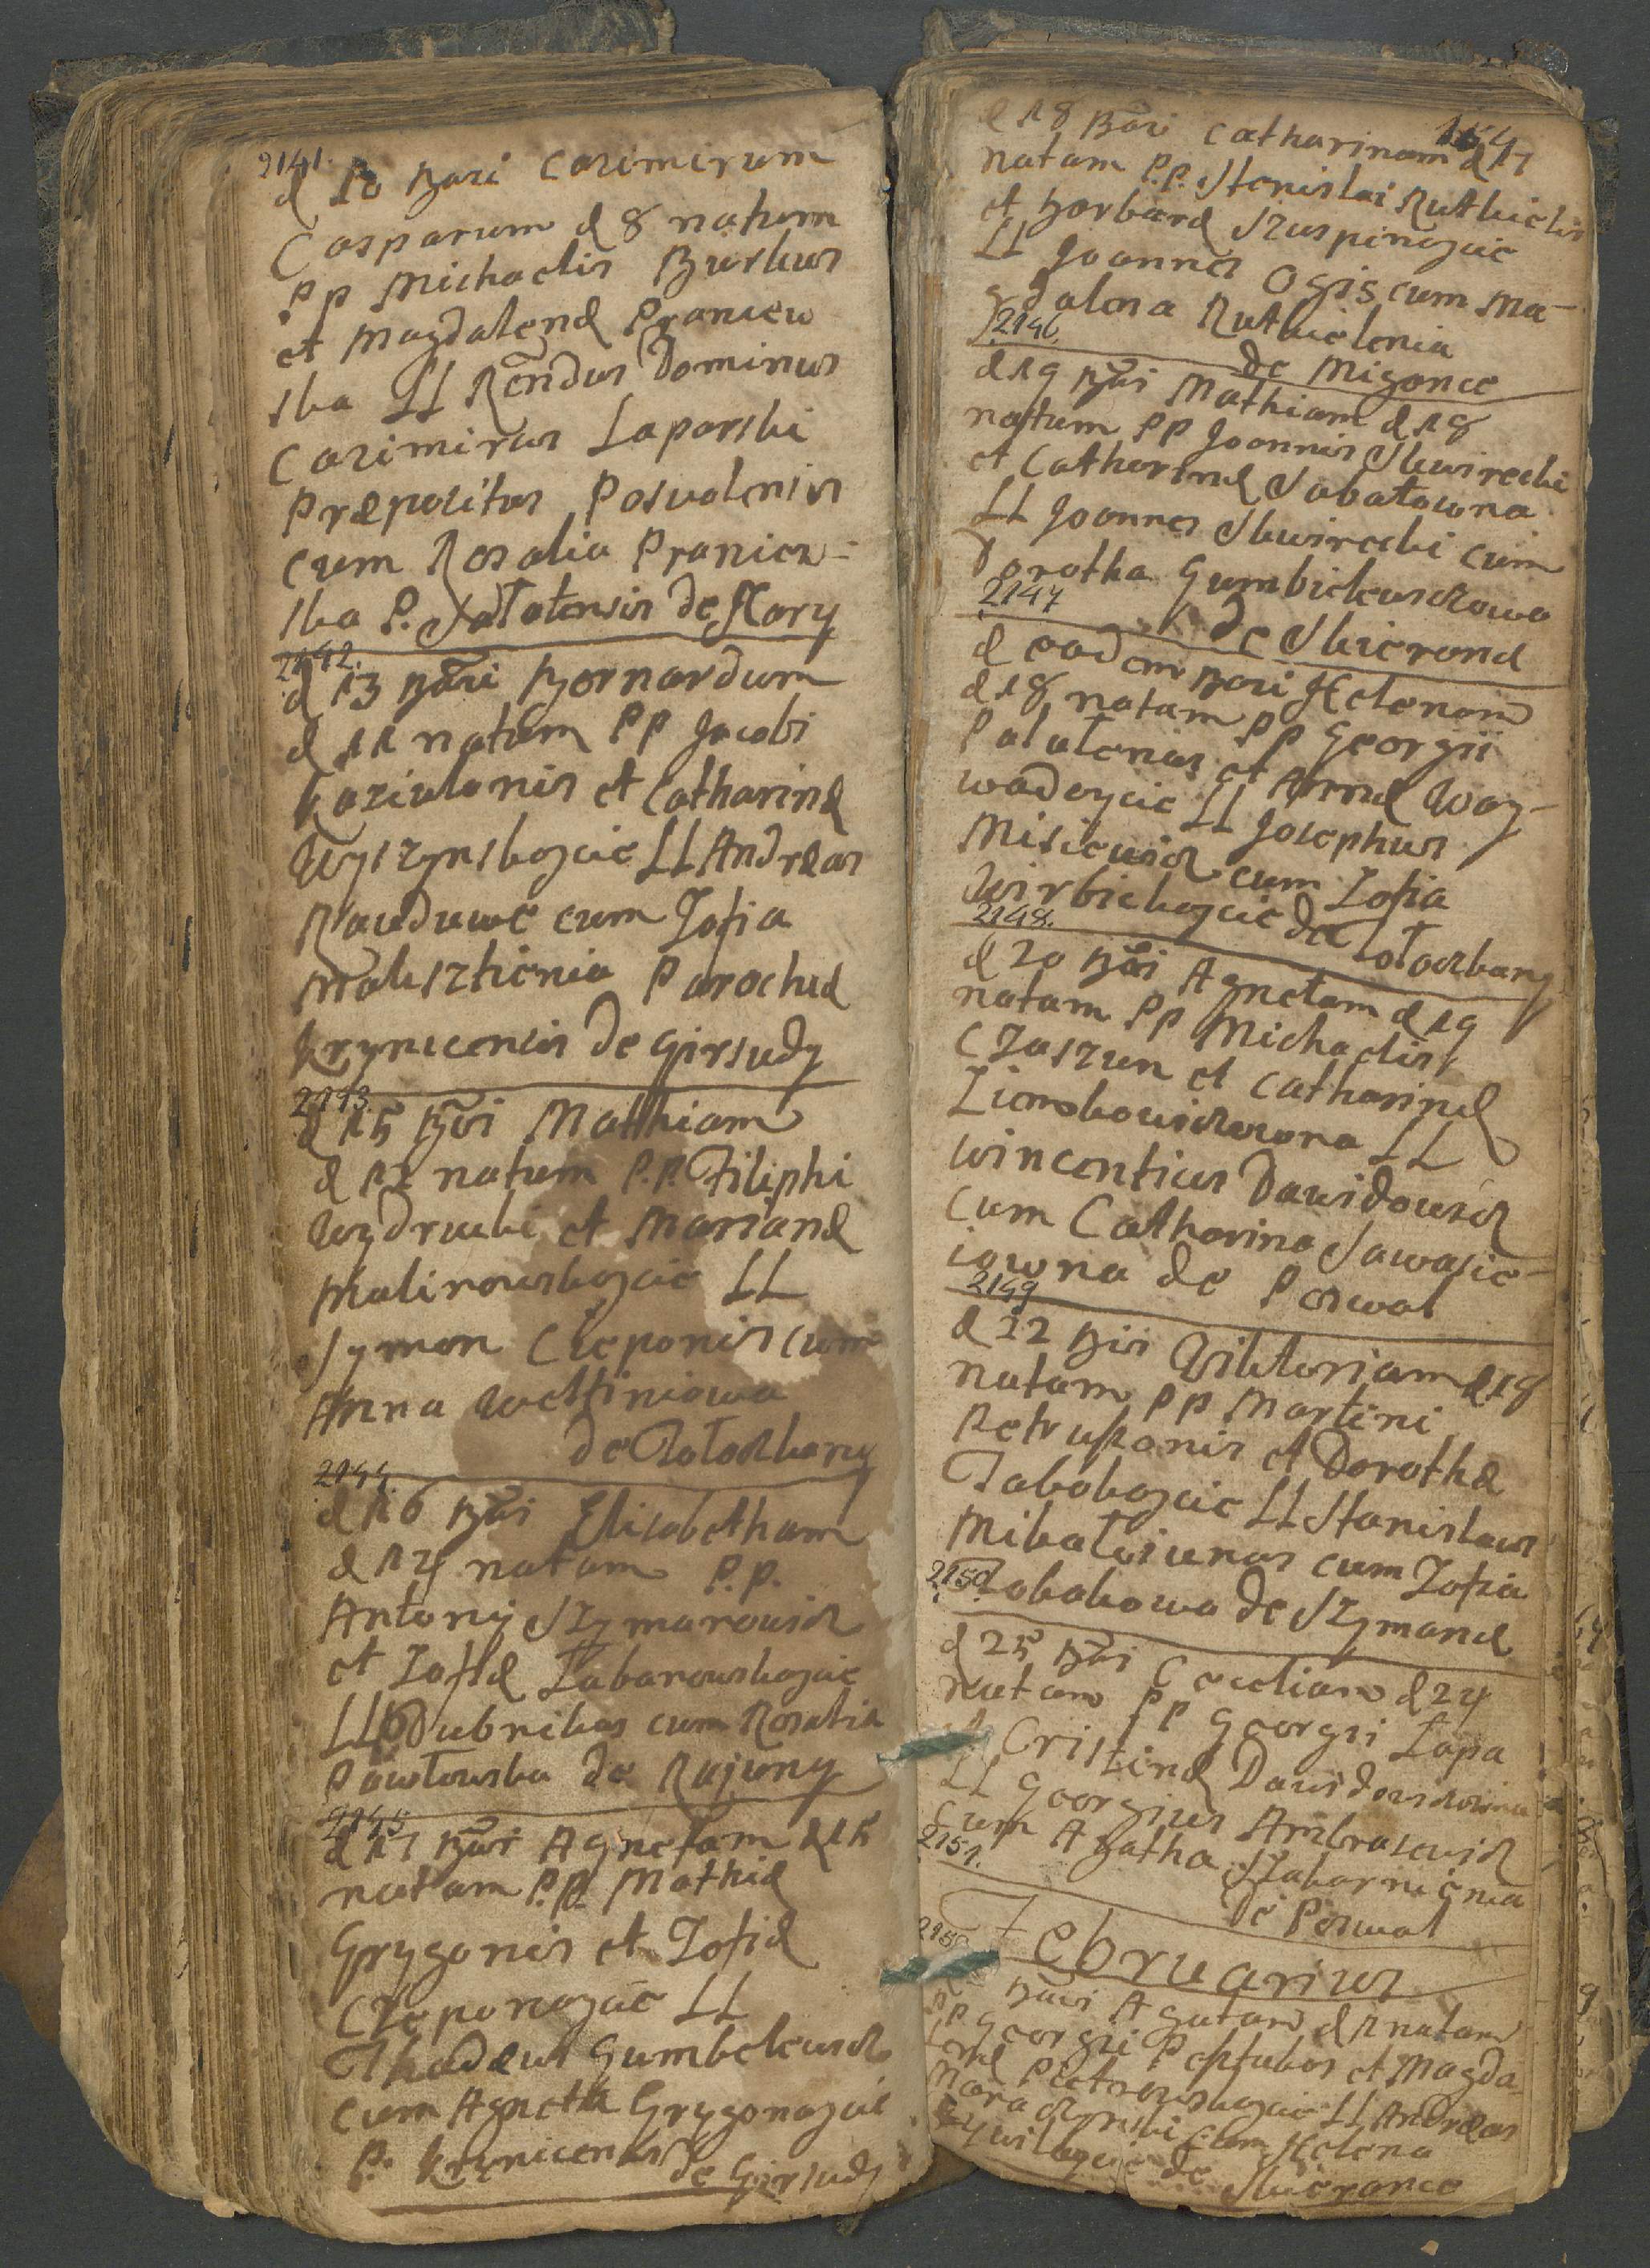 2141.
d 10 Bazi Casimirum
Casparum d 8 natum
PP Michaelis Burkus
et Magdalenæ Praniew
ska LL Rendus Dominus
Casimirus Laparski
Præpositus Posvolensis
cum Rosalia Praniew-
ska P. de Kory
2142.
d 13 Bazi Bernardum
d 11 natum PP Jacobi
Kaziulonis et Catharinæ
Wyszynskoycie LL Andreas
Rauduwe cum Zofia
Parochiæ
Krynicensis de Girsudy
2143.
d 15 Bazi Matthiam
d 12 natum P.P. Filiphi
Wydrucki et Marianæ
Malinowskoycie LL
Symon Czeponis cum
Anna
de Tołoczkany
2144.
d 16 Bazi Elisabetham
d 14 natam P.P.
Antonij Szymanowicz
et Zofiæ Zabarowskoycie
LL Dubnikas cum Rosalia
Pawłowska de Rajuny
2145
d 17 Bazi Agnetam d 15
natam P.P. Mathiæ
Grygonis et Zofiæ
Czeponoycie LL
Thadæus Gumbelewicz
cum Agneta Grygonoycie
P. Krynicensis de Girsudy
154
d 18 Bazi Catharinam d 17
natam P.P. Stanislai Rutkielis
et Barbaræ Szuspinoycie
LL Joannes Ogis cum Ma-
gdalena Rutkielenia
2146.
de Migonce
d 19 Bazi Mathiam d 18
natum PP Joannis Skwirecki
et Catharinæ Sabatowna
LL Joannes Skwirecki cum
Dorotha Gumbielewiczowa
2147
de Skieranæ
d eadem Bazi Helenam
d 18 natam PP Georgii
Palulenas et Annæ Way-
wadoycie LL Josephus
Misiewicz cum Zofia
Wirbickoycie de Tołoczkany
2148.
d 20 Bazi Agnetam d 19
natam PP Michaelis
Czaszun et Catharinæ
Ziomkowiczowna LL
Wincentius Dawidowicz
cum Catharina Sawasie-
iowna de Poswol
2149
d 22 Bizi Wiktoriam d 18
natam PP Martini
Petruszonis et Dorothæ
Tabokoycie LL Stanislaus
Mikatoiunas cum Zofia
2150
Tobokowa de Szymanæ
d 25 Bazi Cecilian d 24
natam PP Georgii Zapa
et Cristinæ Dawidowiczowna
LL Georgius Ambrasewicz
cum Agatha Szakarnienia
2151.
de Poswol
Februarius
Bazi Agatam d 1 natam
PP Georgii et Magda-
lenæ Pietrowskoycie LL Andreas
cum Helena
de Skieranæ